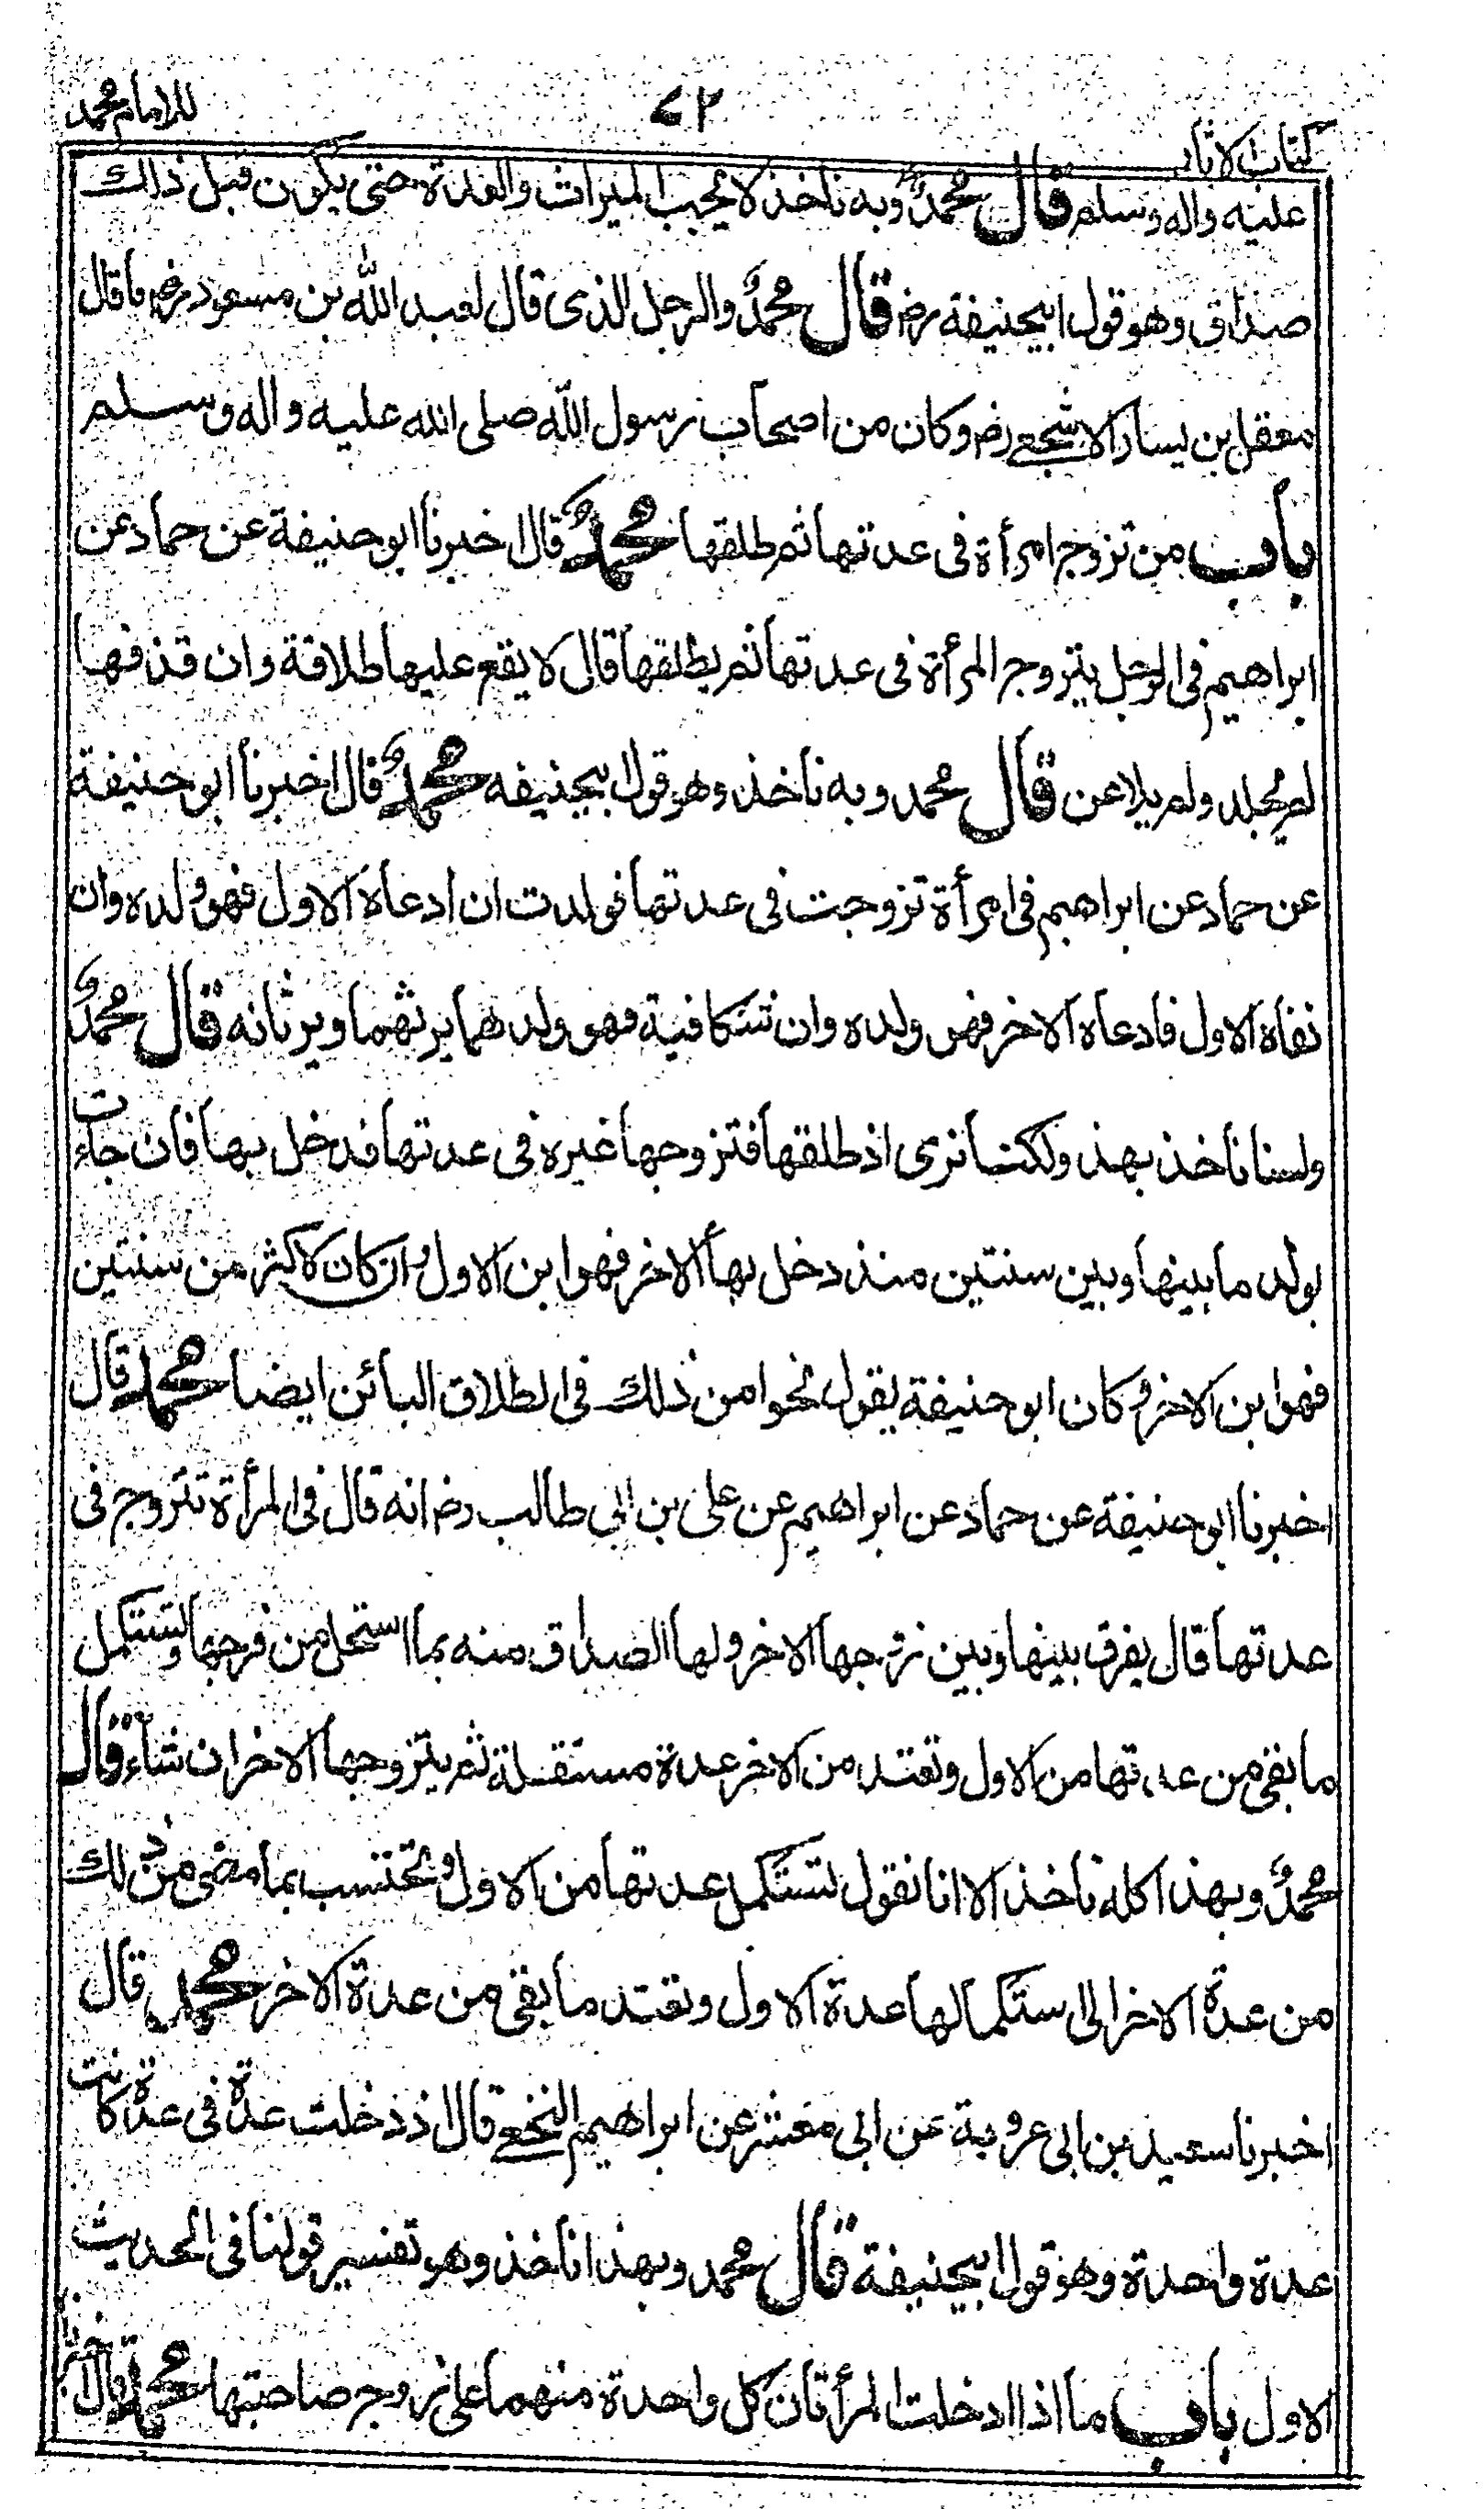 كتاب الآثار ٧٢ للامام محمد
عليه واله وسلم قال محمد وبه ناخذ لا يجب الميراث والعدة حتى يكون قبل ذلك
صداق وهو قول ابيحنيفة رض قال محمد والرجل الذى قال لعبد الله بن مسعود رض ما قال
معقل بن يسار الاشجعى رض وكان من اصحاب رسول الله صلى الله عليه واله وسلم
باب من تزوج امرأة فى عدتها ثم طلقها محمد قال اخبرنا ابو حنيفة عن حماد عن
ابراهيم فى الرجل يتزوج المرأة فى عدتها ثم يطلقها قال لا يقع عليها طلاقة وان قذفها
لم يجلد ولم يلاعن قال محمد وبه ناخذ وهو قول ابيحنيفه محمد قال اخبرنا ابو حنيفة
عن حماد عن ابراهيم فى امرأة تزوجت فى عدتها فولدت ان ادعاه الاول فهو ولده وان
نفاه الاول فادعاه الاخر فهو ولده وان شكا فيه فهو ولدهما يرثهما ويرثانه قال محمد
ولسنا ناخذ بهذ ولكنا نرى اذ طلقها فتزوجها غيره فى عدتها فدخل بها فان جاءت
بولد ما بينها وبين سنتين منذ دخل بها الاخر فهو ابن الاول وان كان لاكثر من سنتين
فهو ابن الاخر وكان ابو حنيفة يقول نحوا من ذلك فى الطلاق البائن ايضا محمد قال
اخبرنا ابو حنيفة عن حماد عن ابراهيم عن على بن ابى طالب رض انه قال فى المرأة تتزوج فى
عدتها قال يفرق بينها وبين زوجها الاخر ولها الصداق منه بما استحل من فرجها وتستكمل
ما بقى من عدتها من الاول وتعتد من الاخر عدة مستقبلة ثم يتزوجها الاخر ان شاء قال
محمد وبهذا كله ناخذ الا انا نقول تستكمل عدتها من الاول وتحتسب بما مضى من ذلك
من عدة الاخر الى استكمالها عدة الاول وتعتد ما بقى من عدة الاخر محمد قال
اخبرنا سعيد بن ابى عروبة عن ابى معشر عن ابراهيم النخعى قال اذ دخلت عدة فى عدة كانت
عدة واحدة وهو قول ابيحنيفة قال محمد وبهذا ناخذ وهو تفسير قولنا فى الحديث
الاول باب ما اذا ادخلت المرأتان كل واحدة منهما على زوج صاحبتها محمد قال اخبرنا